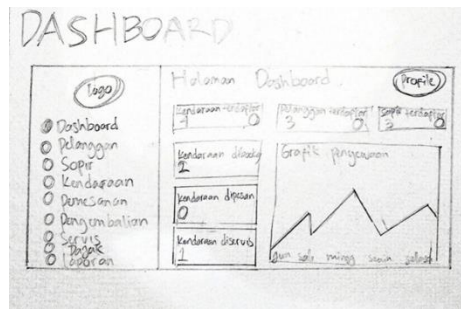 DASHBOARD
Logo
Dashboard
Pelanggan
Sopir
Kendaraan
Pemesanan
Pengembalian
Servis
Pajak
Laporan
Halaman Dashboard
Profile
Kendaraan terdaftar
Pelanggan terdaftar
3
Sopir terdaftar
Kendaraan
2
Kendaraan dipesan
0
Kendaraan diservis
1
Grafik penyewaan
sab ming senin selasa